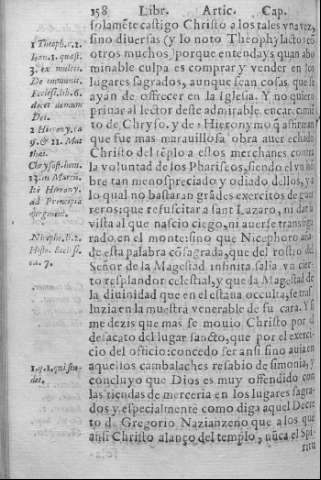 158 Libr. Artic. Cap.
solamẽte castigo Christo a los tales vna vez,
sino diuersas (y lo noto Theophylacto es
otros muchos) porque entendays quan abo
minable culpa es comprar y vender en los
lugares sagrados, aunque sean cosas que se
ayan de offrecer en la Iglesia. Y no quiero
priuar al lector deste admirable encarecimiẽ
to de Chryso. y de 2 Hieronymo q̃ affirman
que fue mas marauillosa obra auer echado
Christo del tẽplo a estos merchanes contra
la voluntad de los Phariseos, siendo el vn hõ
bre tan menospreciado y odiado dellos, y a
lo qual no bastaran grãdes exercitos de gue
rreros: que resuscitar a sant Lazaro, ni dar la
vista al que nascio ciego, ni auerse transfigu
rado en el monte: sino que Nicephoro aña
de esta palabra cõsagrada, que del rostro del
Señor de la Magestad infinita salia vn cier
to resplandor celestial, y que la Magestad de
la diuinidad que en el estaua occulta, le tras
luzia en la muestra venerable de su cara. Y si
me dezis que mas se mouio Christo por el
desacato del lugar sancto, que por el exerci
cio del officio: concedo ser ansi sino auia en
aquellos cambalaches resabio de simonia, y
concluyo que Dios es muy offendido con
las tiendas de merceria en los lugares sagra
dos y especialmente como diga aquel Decre
to de Gregorio Nazianzeno que a los que
ansi Christo alanço del templo, nũca el Spi-
ritu
1 Theoph. c. 2.
Ioan. 1. quæst.
3. ex multis.
Ecclesi. lib. 6.
Dei.
2 Hierony. ca
9. & 21. Mat
thæi.
Chrysost. hom.
in Marci.
Ité Hierony.
ad Principiã
virginem.
Nicepho. li. 2.
Histo. Ecclesi.
ca. 7.
1. q. 3. qui stu-
det.